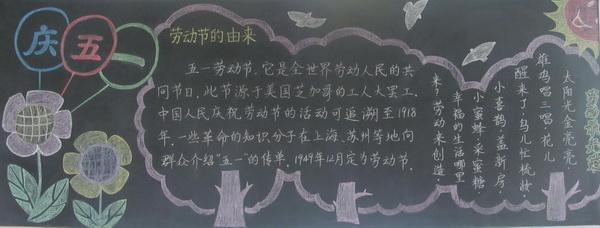 庆五一
劳动节的由来
五一劳动节，它是全世界劳动人民的共
同节日，此节源于美国芝加哥的工人大罢工，
中国人民庆祝劳动节的活动可追溯至1918
年，一些革命的知识分子在上海、苏州等地向
群众介绍“五一”的传单，1949年12月定为劳动节。
太阳光金亮亮，
雄鸡唱三唱，花儿
醒来了，鸟儿忙梳妆，
小喜鹊，盖新房，
小蜜蜂，采蜜糖，
幸福的生活哪里
来？劳动来创造。